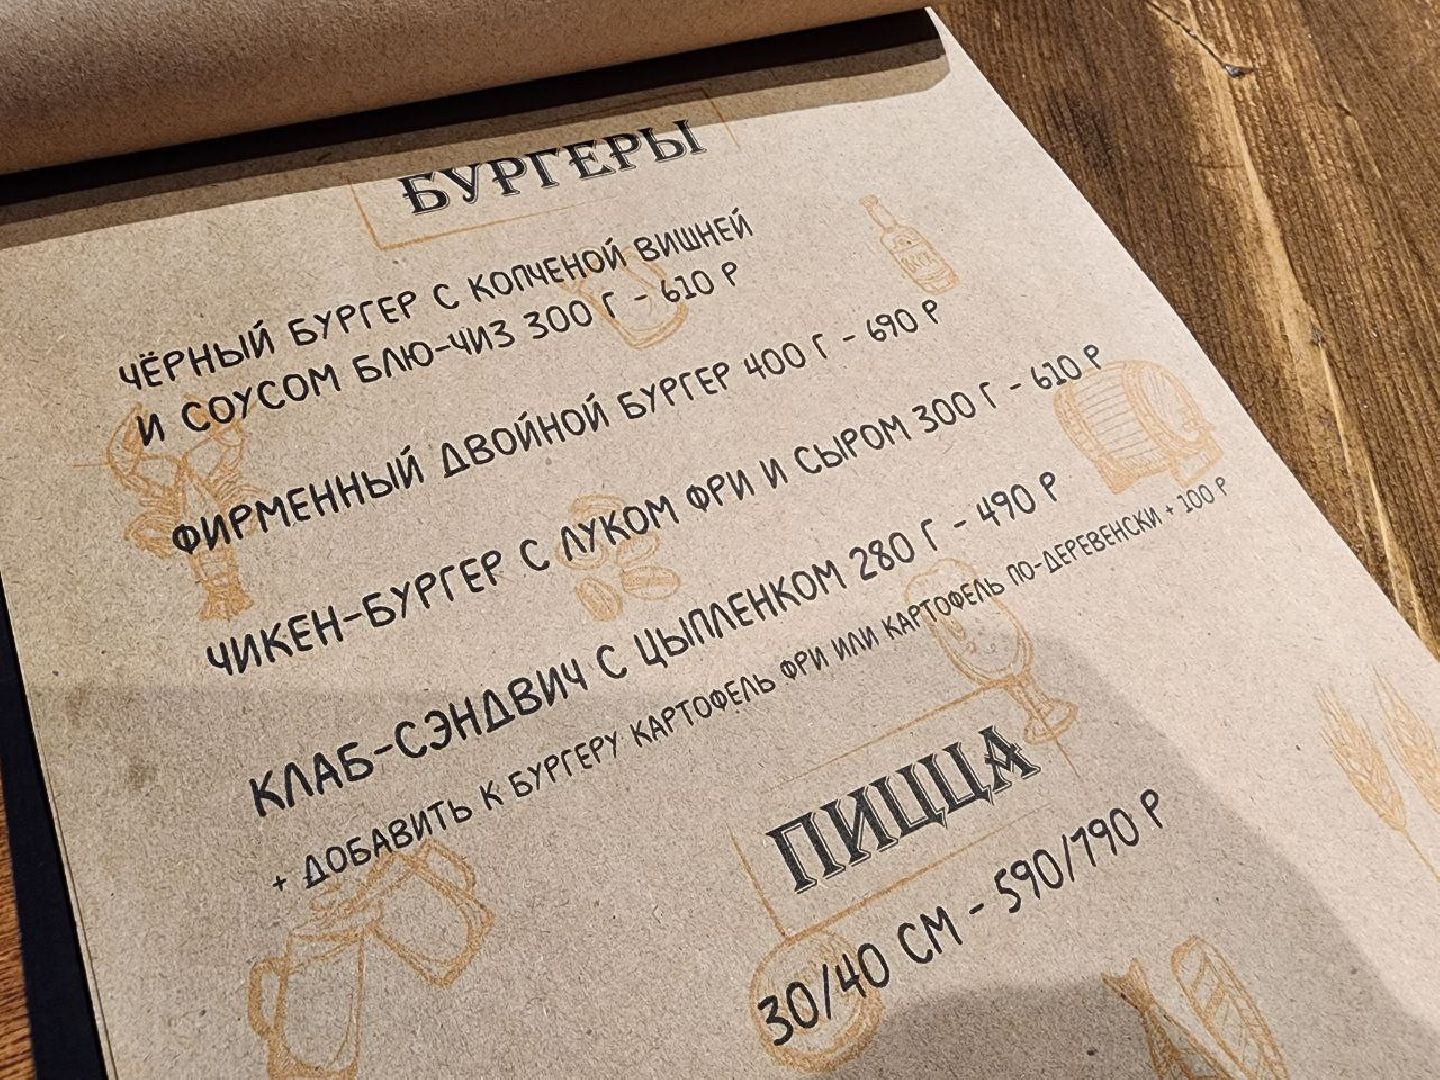 БУРГЕРЫ
ЧЁРНЫЙ БУРГЕР С КОПЧЕНОЙ ВИШНЕЙ
И СОУСОМ БЛЮ-ЧИЗ 300 Г - 610 Р
ФИРМЕННЫЙ ДВОЙНОЙ БУРГЕР 400 Г - 690 Р
ЧИКЕН-БУРГЕР С ЛУКОМ ФРИ И СЫРОМ 300 Г - 610 Р
КЛАБ-СЭНДВИЧ С ЦЫПЛЕНКОМ 280 Г - 490 Р
+ ДОБАВИТЬ К БУРГЕРУ КАРТОФЕЛЬ ФРИ ИЛИ КАРТОФЕЛЬ ПО-ДЕРЕВЕНСКИ + 100 Р
ПИЦЦА
30/40 СМ - 590/790 Р